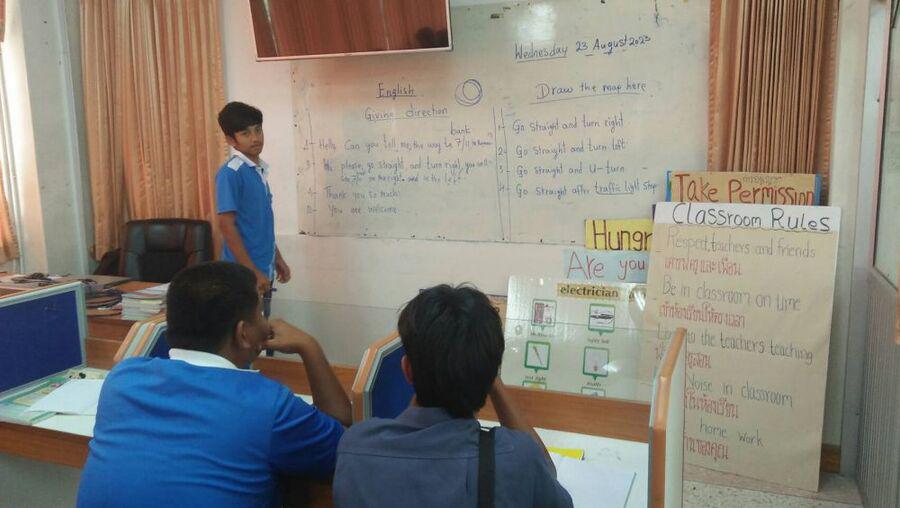 Wednesday 23 August 2023
English
Giving direction
bank
Hello Can you tell me the way to 7/11
please, go straight and turn right, you will
on the right and is the left
Thank you so much
You are welcome
Draw the map here
1- Go straight and turn right
2- Go straight and turn left
3- Go straight and U-turn
4- Go straight after traffic light stop
Take Permission
Hungr
Are you
electrician
Classroom Rules
Respect teachers and friends
เคารพครูและเพื่อน
Be in classroom on time
เข้าห้องเรียนให้ตรงเวลา
to the teachers teaching
Noise in classroom
home work